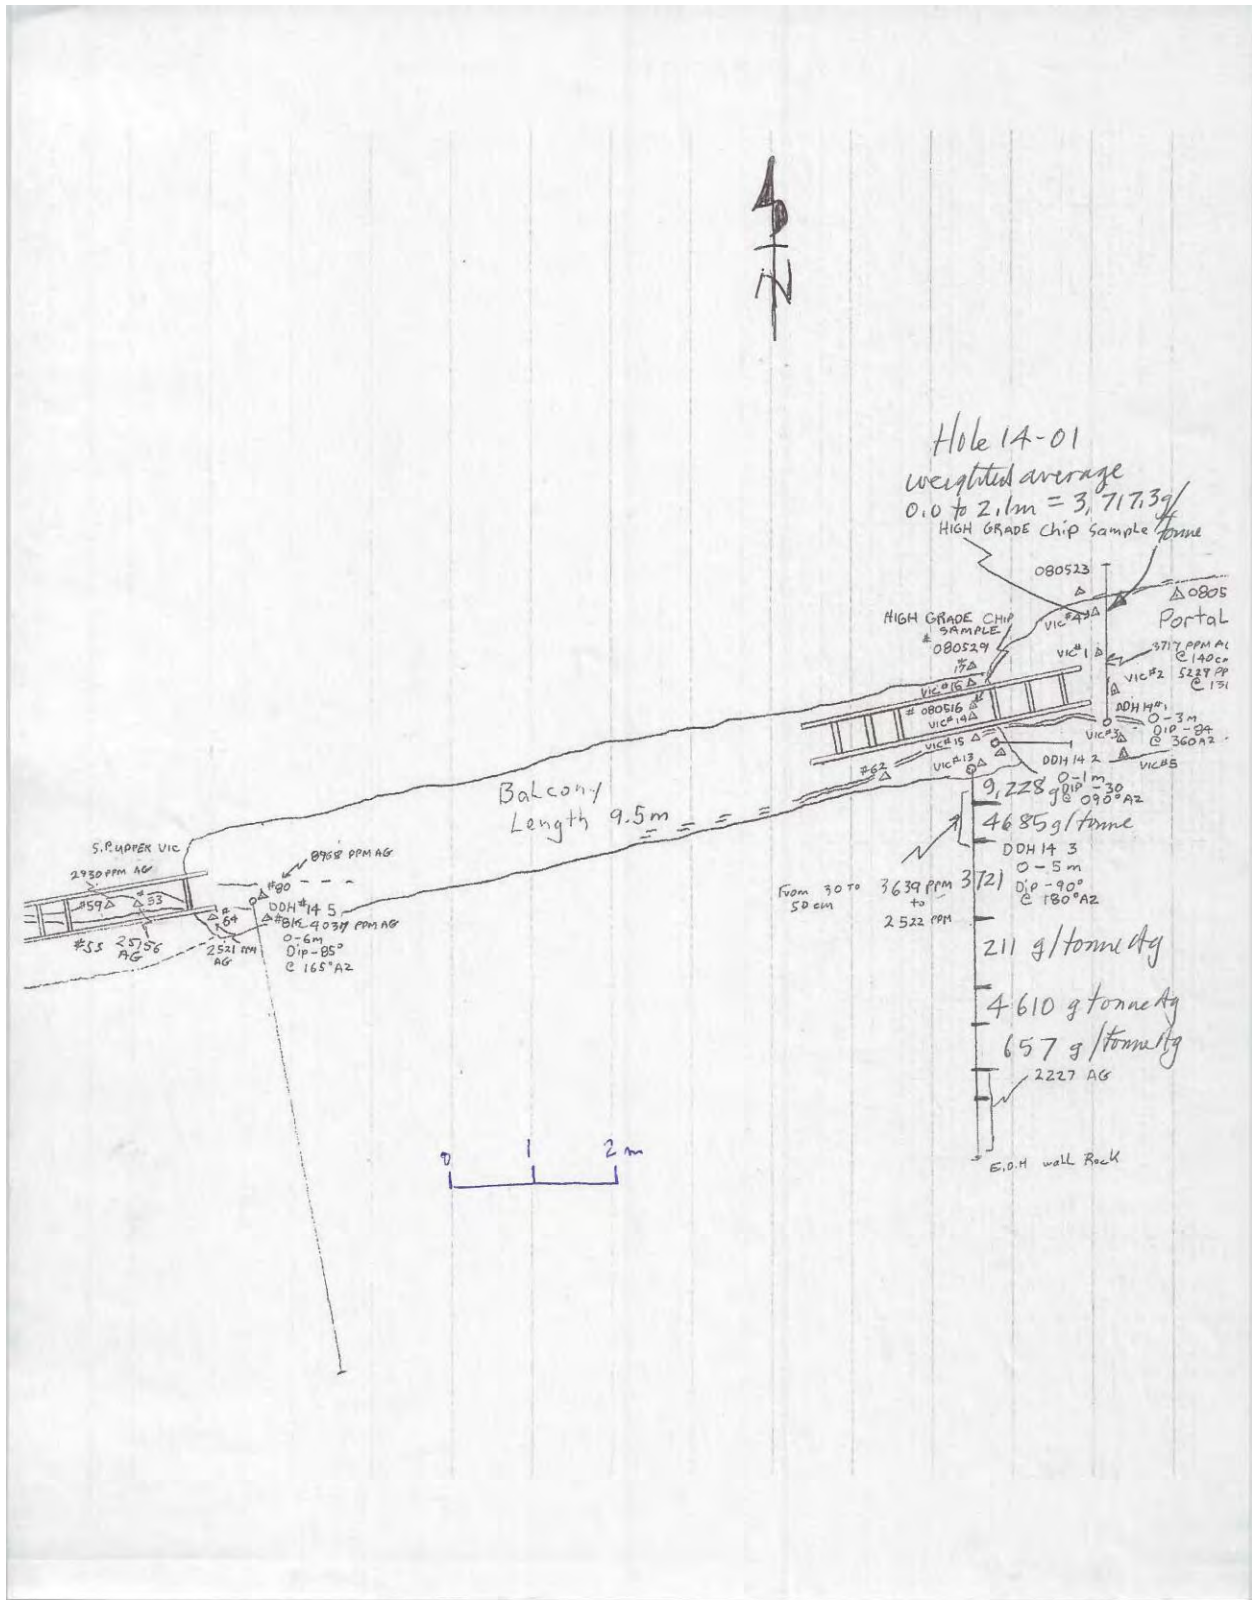 N
Hole 14-01
weighted average
0.0 to 2.1m = 3,717.3g/
tonne
HIGH GRADE Chip Sample
080523
0805
Portal
VIC#4
HIGH GRADE CHIP
SAMPLE
# 080529
VIC#1
3717 PPM
@ 140cm
VIC#2 5229 PP
@ 131
#17
VIC#16
# 080516
VIC#14
DDH 14#1
0-3m
DIP -84
@ 360AZ
VIC#3
VIC#15
VIC#5
VIC#13
#62
DDH 14 2
0-1m
DIP -30
@ 090°AZ
9,228 g
4685g/tonne
DDH 14 3
0-5m
DIP -90°
@ 180°AZ
3721
From 30 TO
50 cm
3639 PPM
to
2522 PPM
211 g/tonne Ag
4610 g tonne Ag
657 g/tonne Ag
2227 AG
E.O.H wall Rock
Balcony
Length 9.5m
S.P. UPPER VIC
2930 PPM AG
8958 PPM AG
#80
#59
#33
DDH#14 5
#64
4037 PPM AG
0-6m
Dip-85°
@ 165°AZ
#55
25156
AG
2521 PPM
AG
0 1 2 m